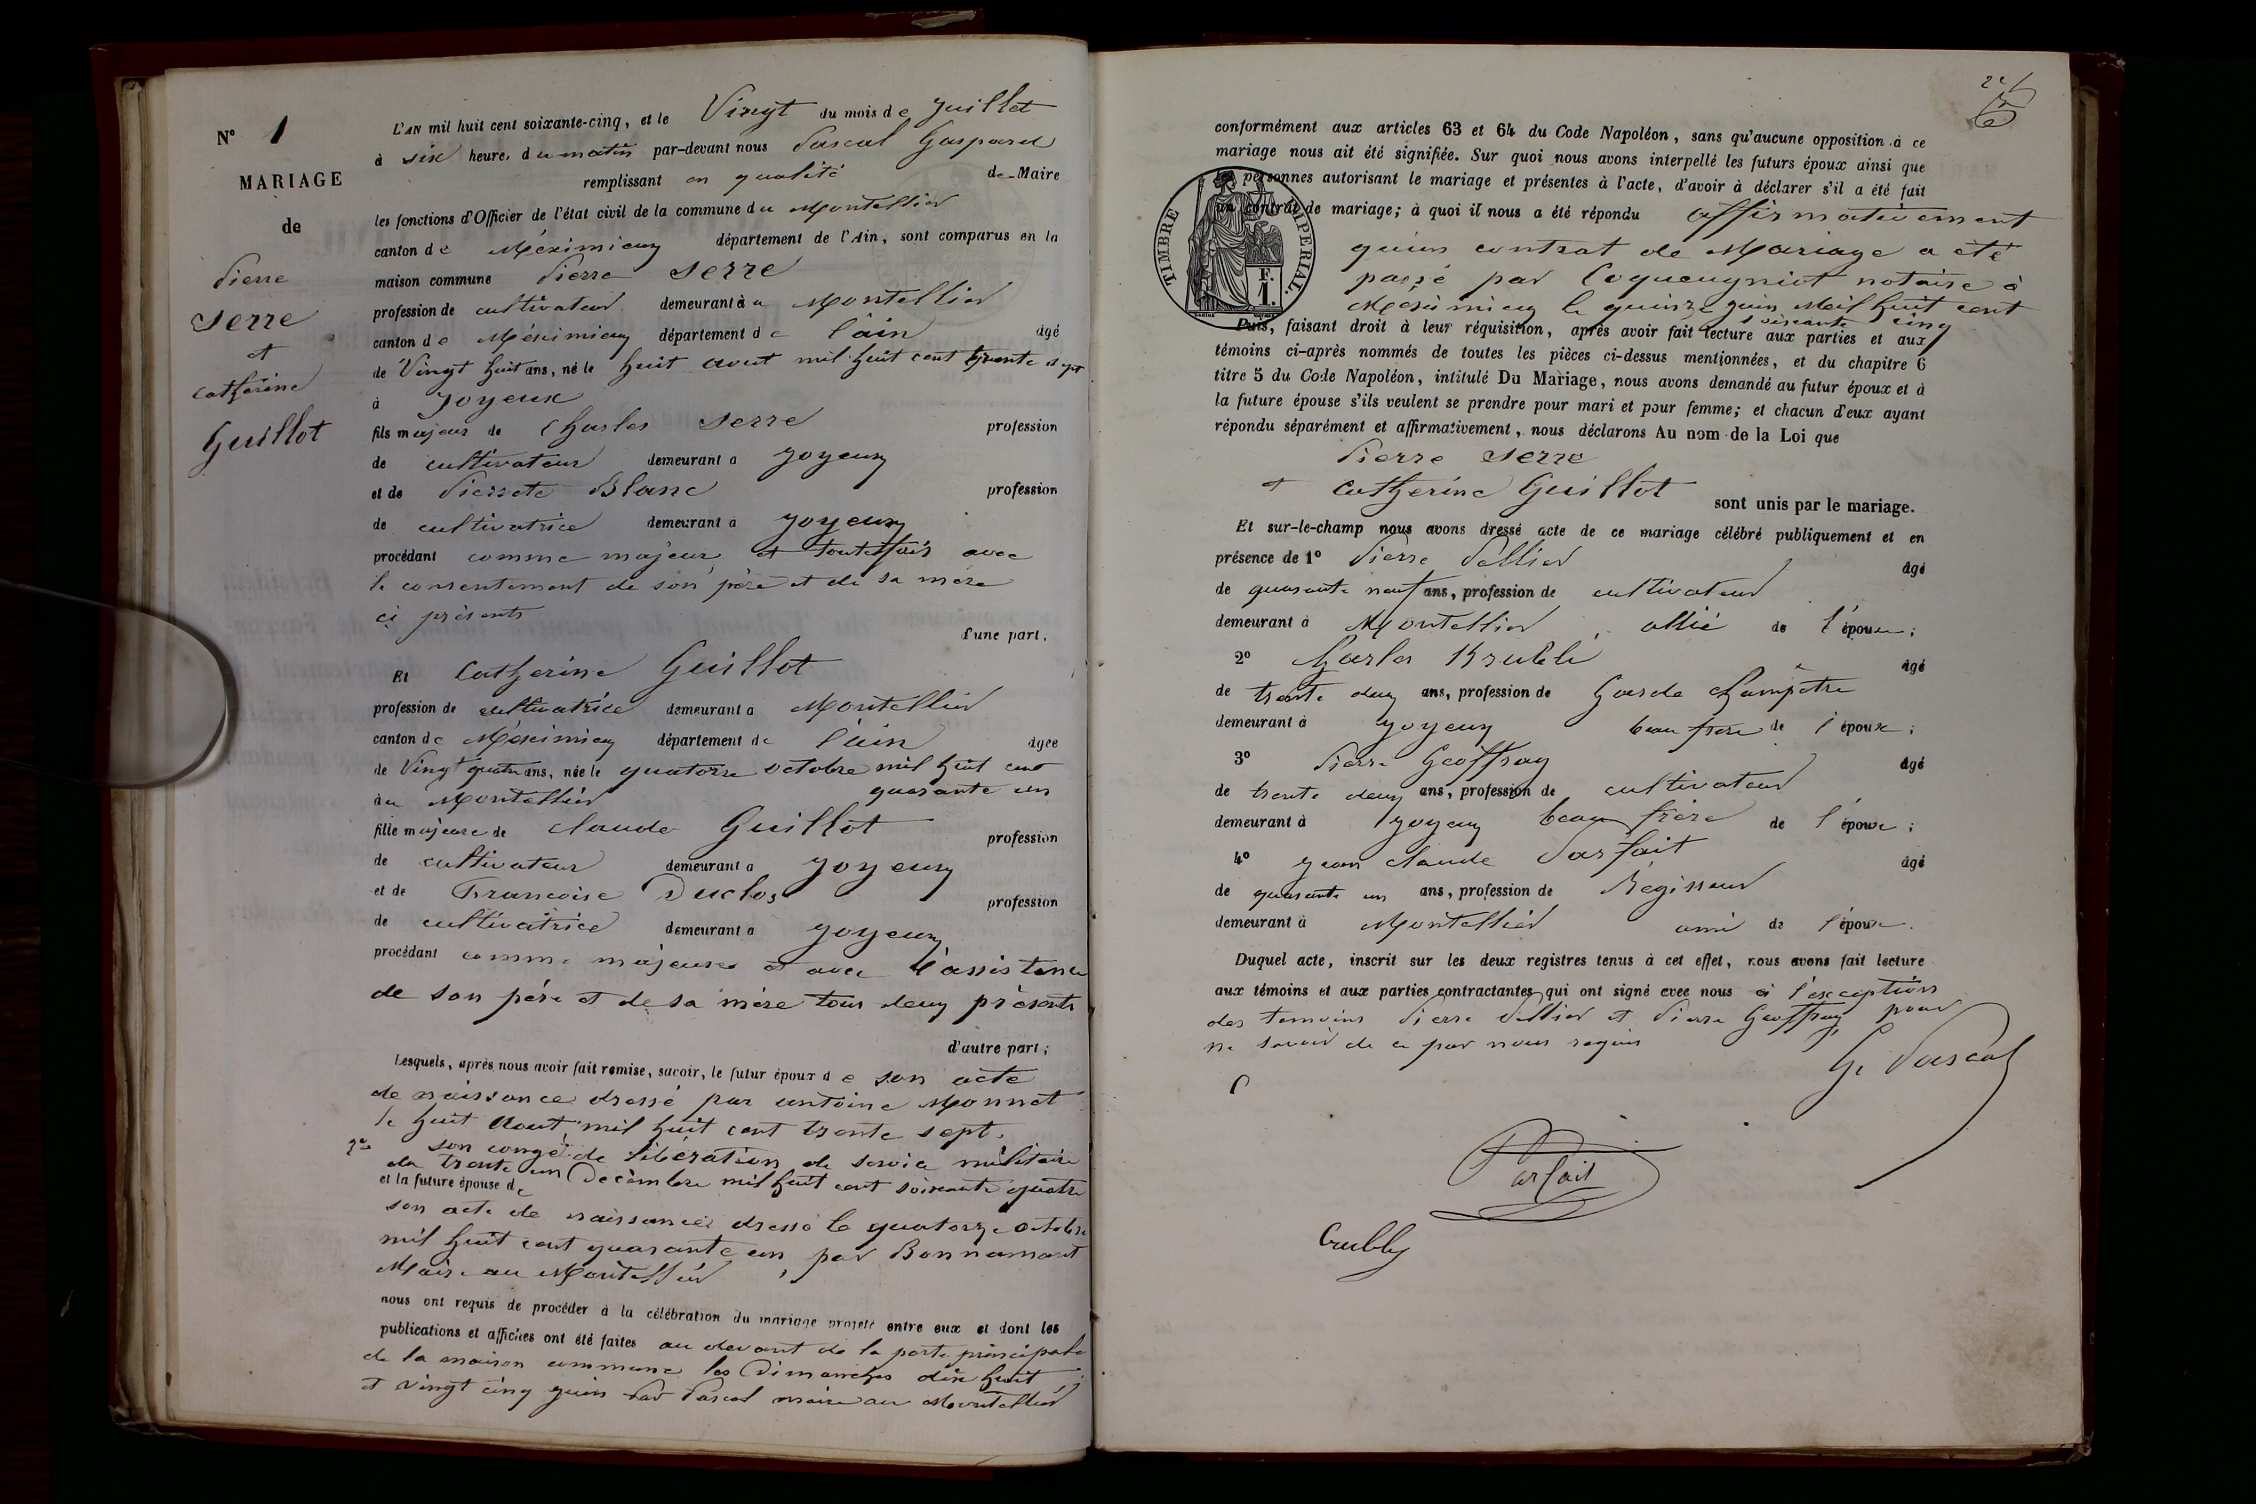 N° 1
MARIAGE
de
Pierre
Serre
et
Catherine
Guillot
L'AN mil huit cent soixante-cinq, et le Vingt du mois de Juillet
à six heure, du matin par-devant nous Pascal Gaspard
remplissant en qualité de Maire
les fonctions d'Officier de l'état civil de la commune du Montellier
canton de Méximieux département de l'Ain, sont comparus en la
maison commune Pierre Serre
profession de cultivateur demeurant à u Montellier
canton de Méximieux département de l'ain âgé
de Vingt huit ans, né le huit aout mil huit cent trente sept
à Joyeux
fils majeur de Charles Serre profession
de cultivateur demeurant a Joyeux
et de Pierrete Blanc profession
de cultivatrice demeurant à Joyeux
procédant comme majeur et toutefois avec
le consentement de son père et de sa mère
ci présents
d'une part.
Et Catherine Guillot
profession de cultivatrice demeurant a Montellier
canton de Méximieux département de l'ain âgée
de Vingt quatre ans, née le quatorze octobre mil huit cent
quarante un
au Montellier
fille majeure de Claude Guillot profession
de cultivateur demeurant a Joyeux
et de Francoise Duclos profession
de cultivatrice demeurant a Joyeux
procédant comme majeure et avec l'assistance
de son père et de sa mère tous deux présents
d'autre part;
Lesquels, après nous avoir fait remise, savoir, le futur époux de son acte
de naissance dressé par antoine Monnet
le huit Aout mil huit cent trente sept.
2° son congé de libération de service militaire
du trente un Décembre mil huit cent soixante quatre
et la future épouse de
son acte de naissance dressé le quatorze Octobre
mil huit cent quarante un, par Bonnamant
Maire au Montellier
nous ont requis de procéder à la célébration du mariage projeté entre eux et dont les
publications et affiches ont été faites au devant de la porte principale
de la maison commune les Dimanches dix huit
et vingt cinq juin par Pascal maire au Montellier
conformément aux articles 63 et 64 du Code Napoléon, sans qu'aucune opposition à ce
mariage nous ait été signifiée. Sur quoi nous avons interpellé les futurs époux ainsi que
personnes autorisant le mariage et présentes à l'acte, d'avoir à déclarer s'il a été fait
un contrat de mariage; à quoi il nous a été répondu affirmativement
TIMBRE IMPERIAL.
F.
1.
qu'un contrat de Mariage a été
passé par Coqueugniot notaire à
Meximieux le quinze juin Mil huit cent
soixante cinq
Puis, faisant droit à leur réquisition, après avoir fait lecture aux parties et aux
témoins ci-après nommés de toutes les pièces ci-dessus mentionnées, et du chapitre 6
titre 5 du Code Napoléon, intitulé Du Mariage, nous avons demandé au futur époux et à
la future épouse s'ils veulent se prendre pour mari et pour femme; et chacun d'eux ayant
répondu séparément et affirmativement, nous déclarons Au nom de la Loi que
Pierre Serre
et Catherine Guillot sont unis par le mariage.
Et sur-le-champ nous avons dressé acte de ce mariage célébré publiquement et en
présence de 1° Pierre Pellier âgé
de quarante neuf ans, profession de cultivateur
demeurant à Montellier allié de l'épouse;
2° Charles âgé
de trente deux ans, profession de Garde Champêtre
demeurant à Joyeux beau frère de l'époux;
3° Pierre Geoffray âgé
de trente deux ans, profession de cultivateur
demeurant à Joyeux beau frère de l'épouse;
4° Jean Claude Parfait âgé
de quarante un ans, profession de Régisseur
demeurant à Montellier ami de l'épouse.
Duquel acte, inscrit sur les deux registres tenus à cet effet, nous avons fait lecture
aux témoins et aux parties contractantes qui ont signé avec nous à l'exception
des temoins Pierre Pellier et Pierre Geoffray pour
ne savoir de ce par nous requis
G. Pascal
Parfait